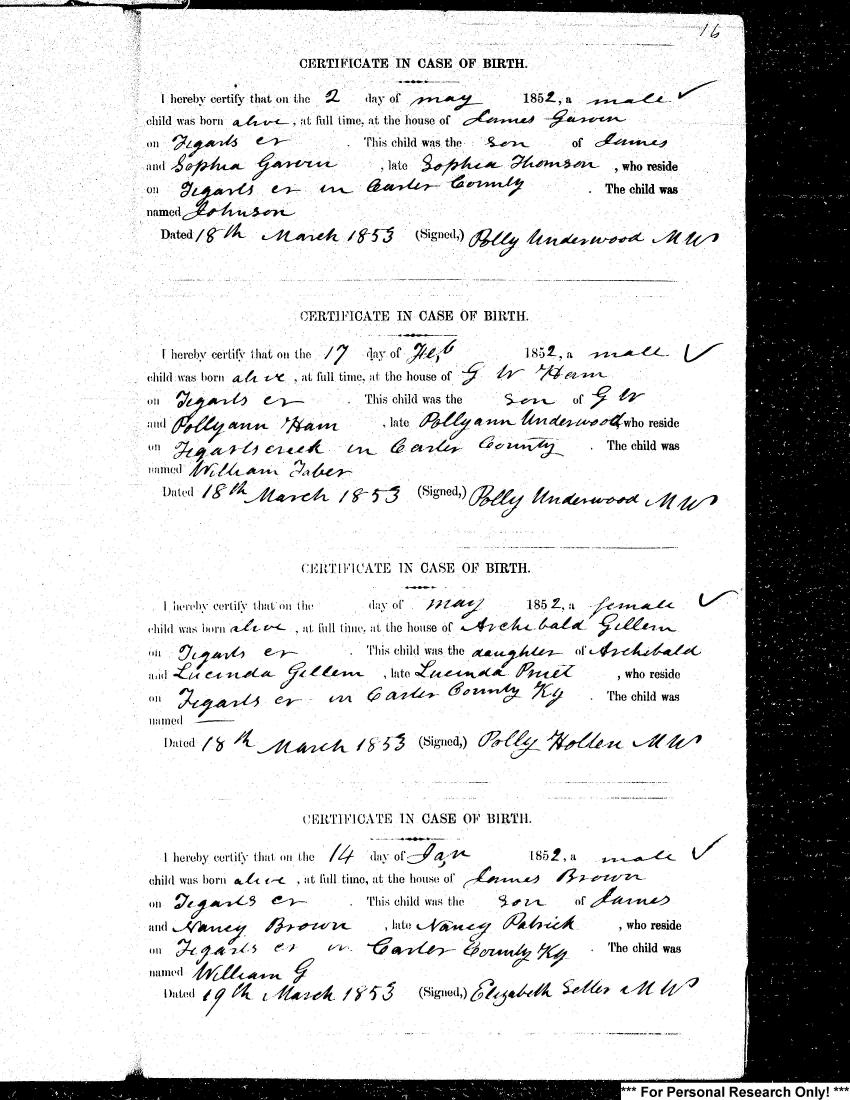 16
CERTIFICATE IN CASE OF BIRTH.
I hereby certify that on the 2 day of may 1852, a male ✓
child was born alive, at full time, at the house of James Garvin
on Tygarts cr . This child was the son of James
and Sophia Garvin , late Sophia Thomson , who reside
on Tygarts cr in Carter County . The child was
named Johnson
Dated 18th March 1853 (Signed,) Polly Underwood M W
CERTIFICATE IN CASE OF BIRTH.
I hereby certify that on the 17 day of Feb 1852, a male ✓
child was born alive , at full time, at the house of G W Ham
on Tygarts cr . This child was the son of G W
and Pollyann Ham , late Pollyann Underwood, who reside
on Tygartscreek in Carter County . The child was
named William Taber
Dated 18th March 1853 (Signed,) Polly Underwood M W
CERTIFICATE IN CASE OF BIRTH.
I hereby certify that on the day of may 1852, a female ✓
child was born alive , at full time, at the house of Archibald Gillem
on Tygarts cr . This child was the daughter of Archibald
and Lucinda Gillem , late Lucinda Pruet , who reside
on Tygarts cr in Carter County Ky . The child was
named —
Dated 18th March 1853 (Signed,) Polly Holten M W
CERTIFICATE IN CASE OF BIRTH.
I hereby certify that on the 14 day of Jan 1852, a male ✓
child was born alive , at full time, at the house of James Brown
on Tygarts cr . This child was the son of James
and Nancy Brown , late Nancy Patrick , who reside
on Tygarts cr in Carter County Ky . The child was
named William G
Dated 19th March 1853 (Signed,) Elizabeth Setler M W
*** For Personal Research Only! ***